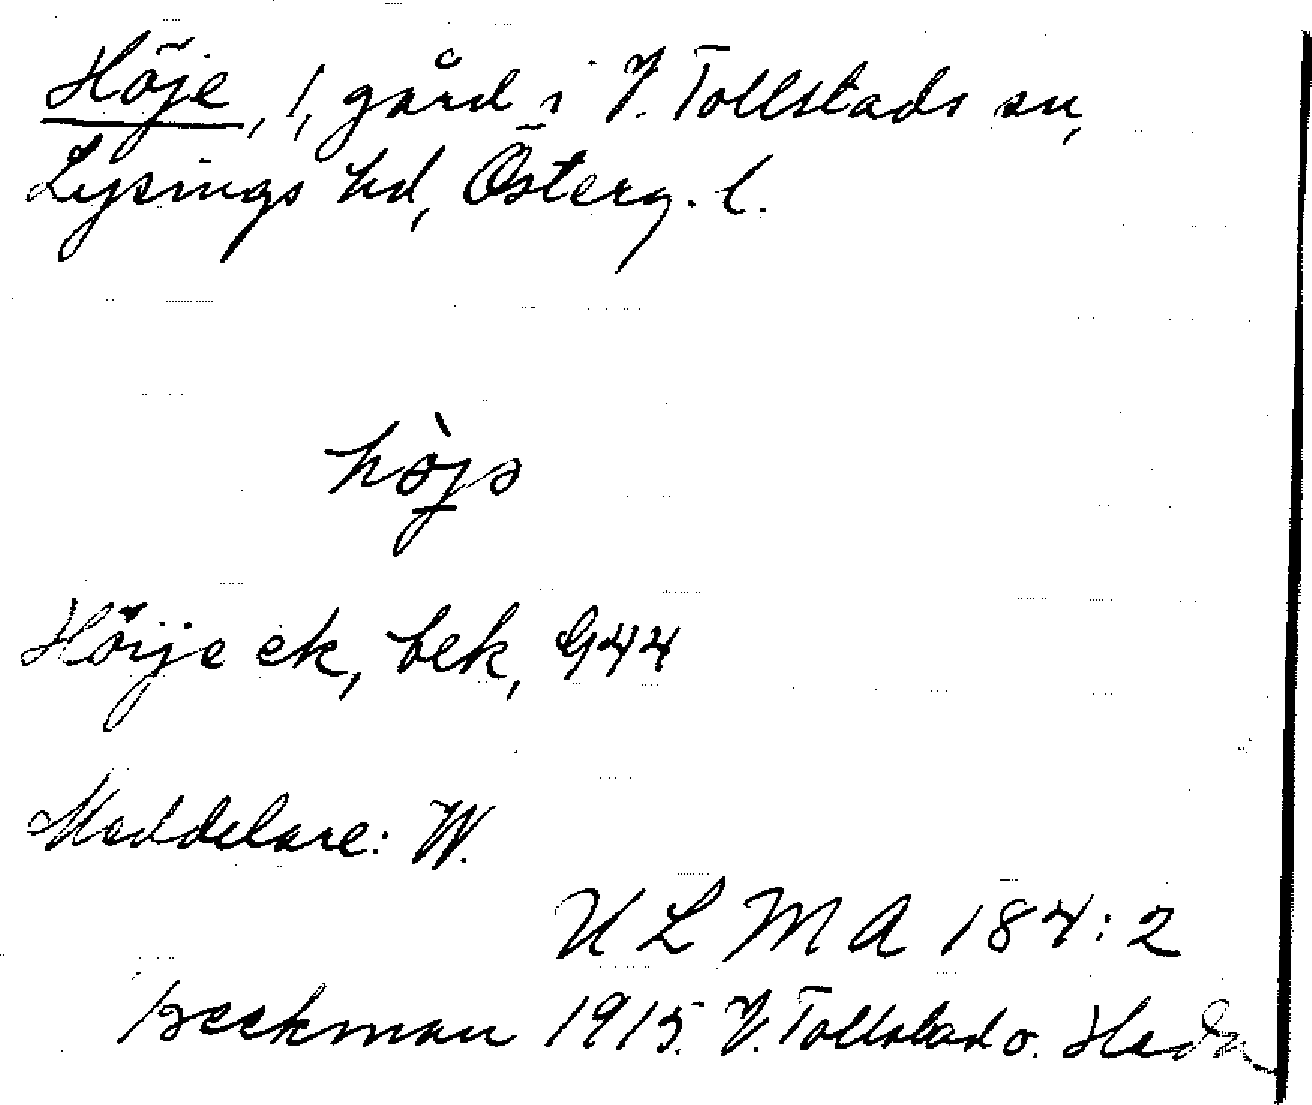 Höje, 1, gård i V. Tollstads sn,
Lysings hd, Österg. l.
hò̤jə
Höije ek, bek, G44
Meddelare: W.
ULMA 184:2
Beckman 1915. V. Tollstad o. Heda